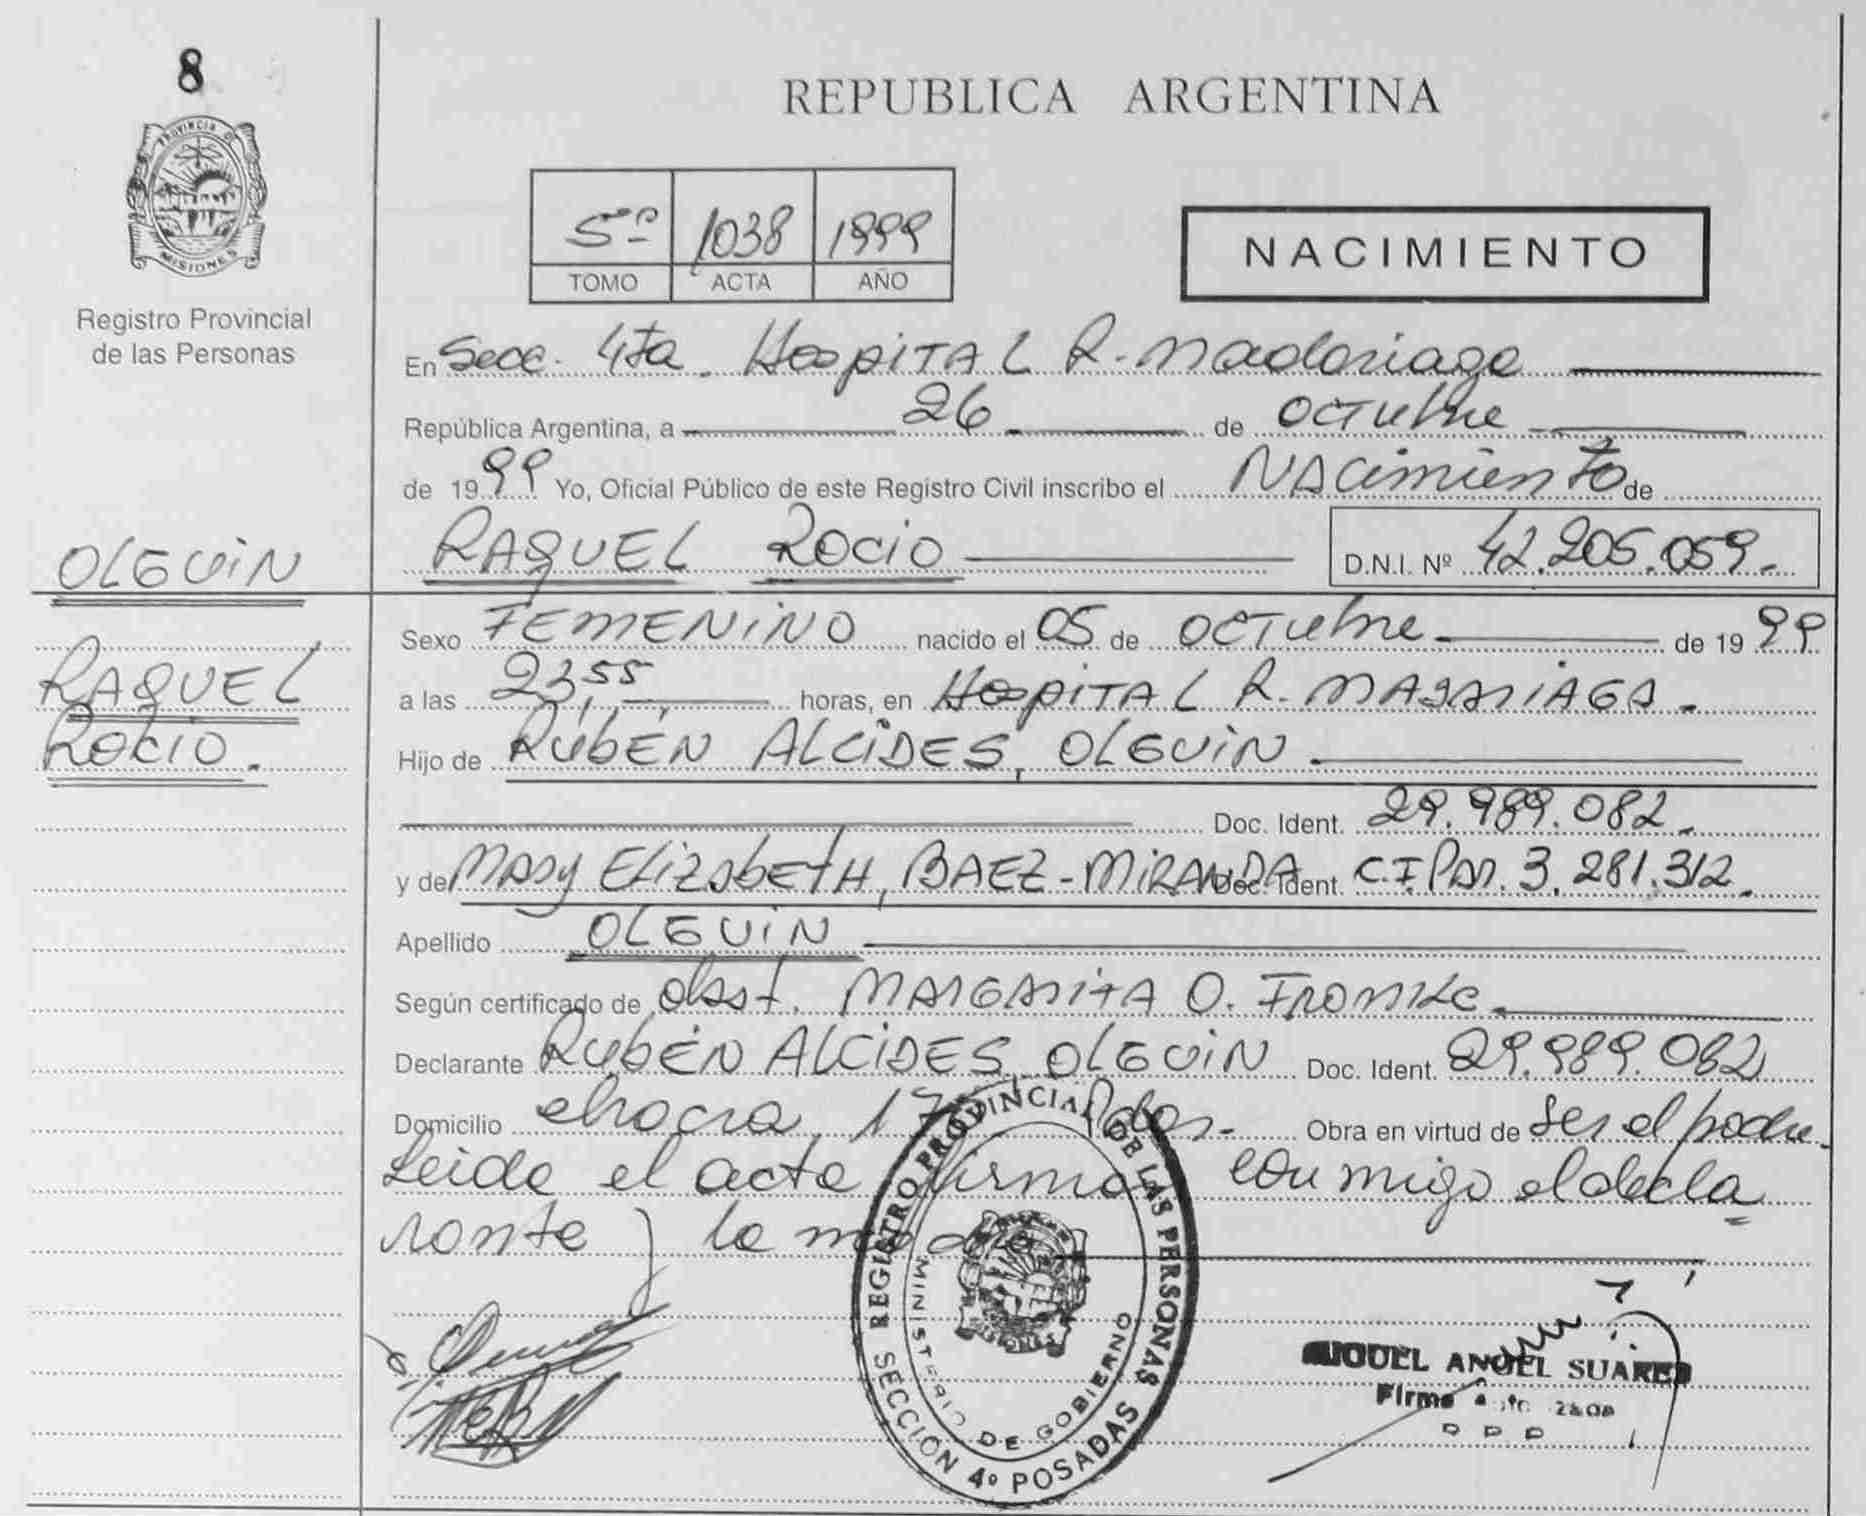 8
PROVINCIA D
MISIONES
Registro Provincial
de las Personas
REPUBLICA ARGENTINA
5º 1038 1999
TOMO ACTA AÑO
NACIMIENTO
En Secc. 4ta. Hospital R. Madariaga
República Argentina, a 26 de octubre
de 1999 Yo, Oficial Público de este Registro Civil inscribo el Nacimiento de
RAQUEL ROCIO D.N.I. Nº 42.205.059.-
OLGUIN
RAQUEL
ROCIO.
Sexo FEMENINO nacido el 05 de octubre de 1999
a las 23,55 horas, en Hospital R. MADARIAGA.
Hijo de RUBÉN ALCIDES, OLGUIN
Doc. Ident. 29.989.082.
y de MARY ELIZABETH, BAEZ-MIRANDA Doc. Ident. C.I.PAR. 3.281.312.
Apellido OLGUIN
Según certificado de obst. MARGARITA O.
Declarante RUBÉN ALCIDES, OLGUIN Doc. Ident. 29.989.082
Domicilio chacra, Pdas.- Obra en virtud de ser el padre.
Leida el acta firma conmigo el decla
rante y la madre
REGISTRO PROVINCIAL DE LAS PERSONAS
MINISTERIO DE GOBIERNO
SECCIÓN 4º POSADAS
MIGUEL ANGEL SUAREZ
Firma